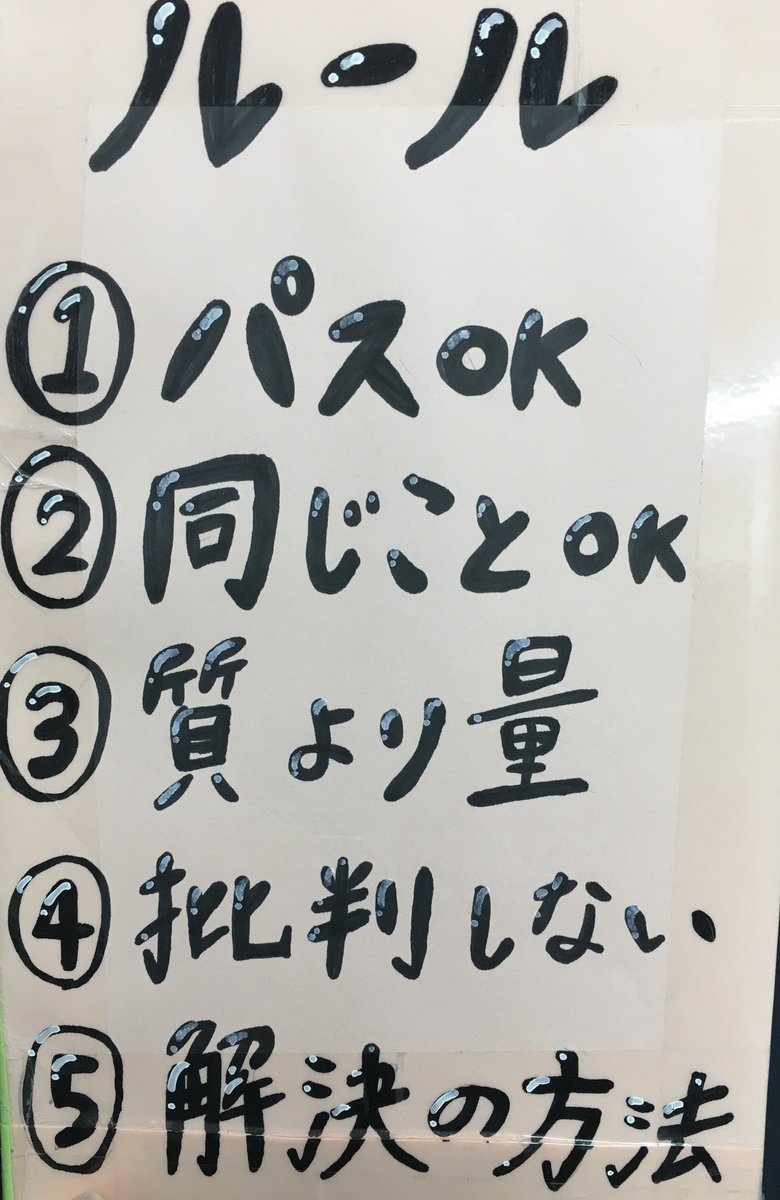 ルール
①パスOK
②同じことOK
③質より量
④批判しない
⑤解決の方法